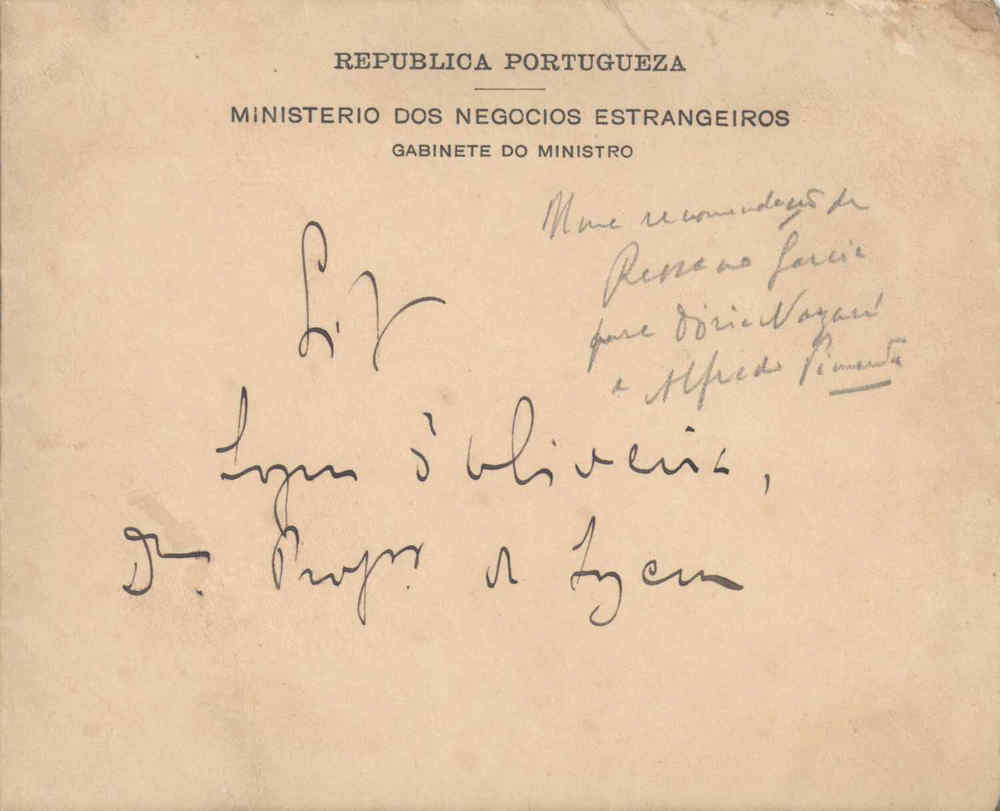 REPUBLICA PORTUGUEZA
MINISTERIO DOS NEGOCIOS ESTRANGEIROS
GABINETE DO MINISTRO
Uma recomendação de
Ressano Garcia
para Dória Nazaré
e Alfredo Pimenta
Lopes d'Oliveira,
Dr. Profr. de Lyceu